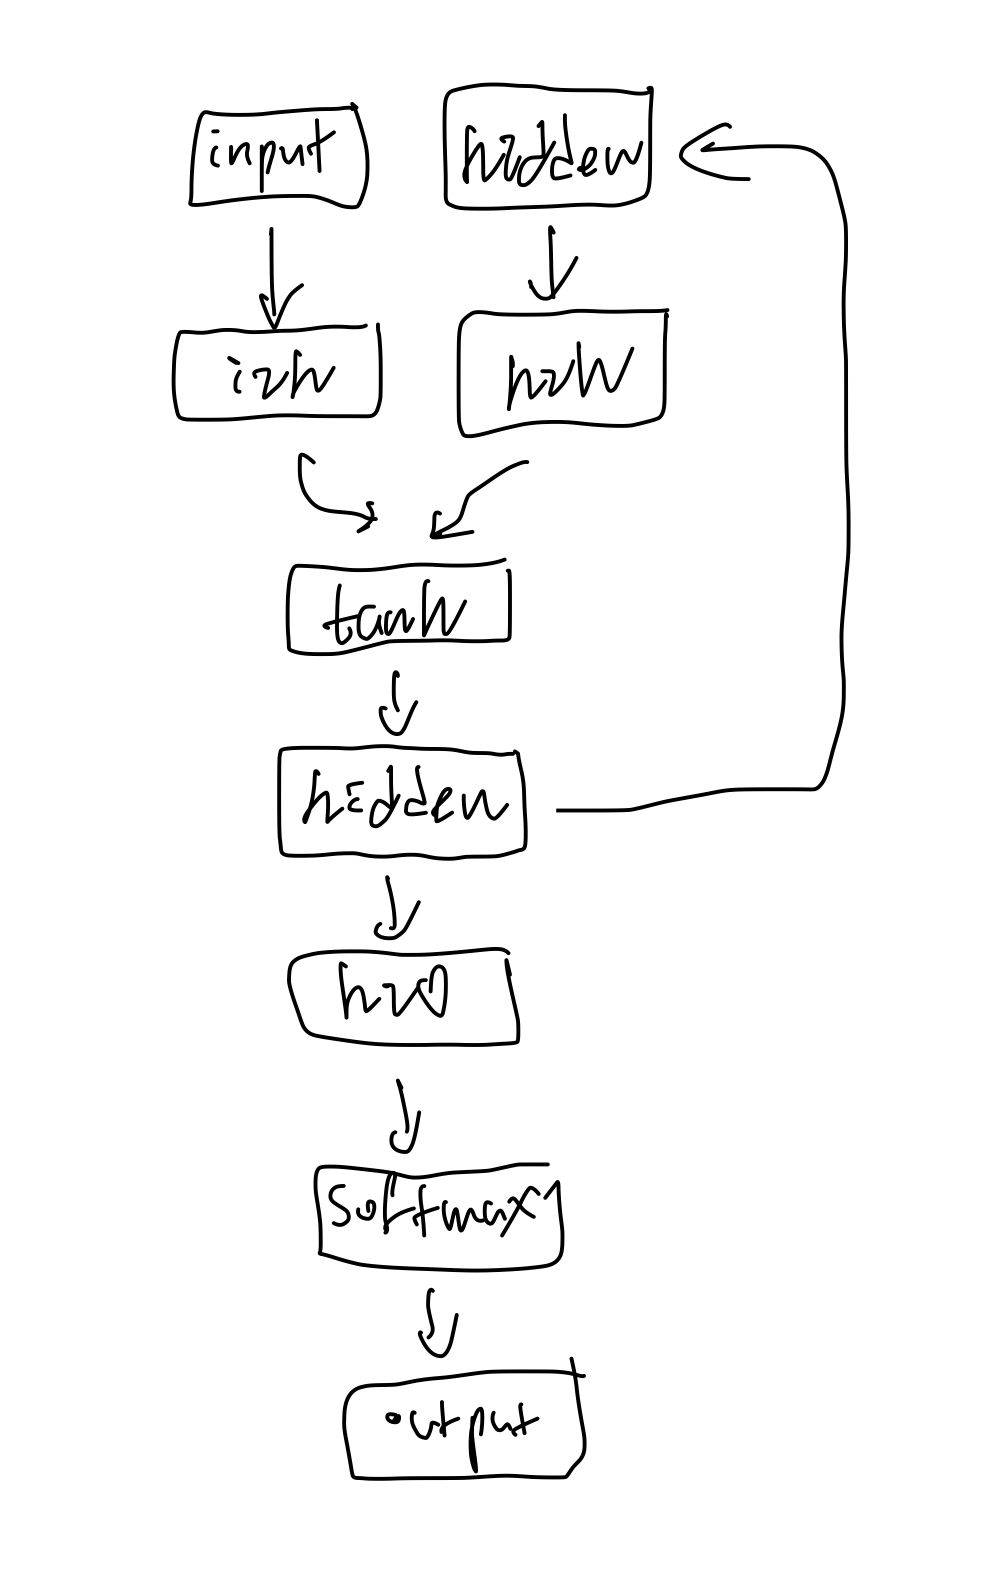 input
hidden
i2h
h2h
tanh
hidden
h2o
softmax
output